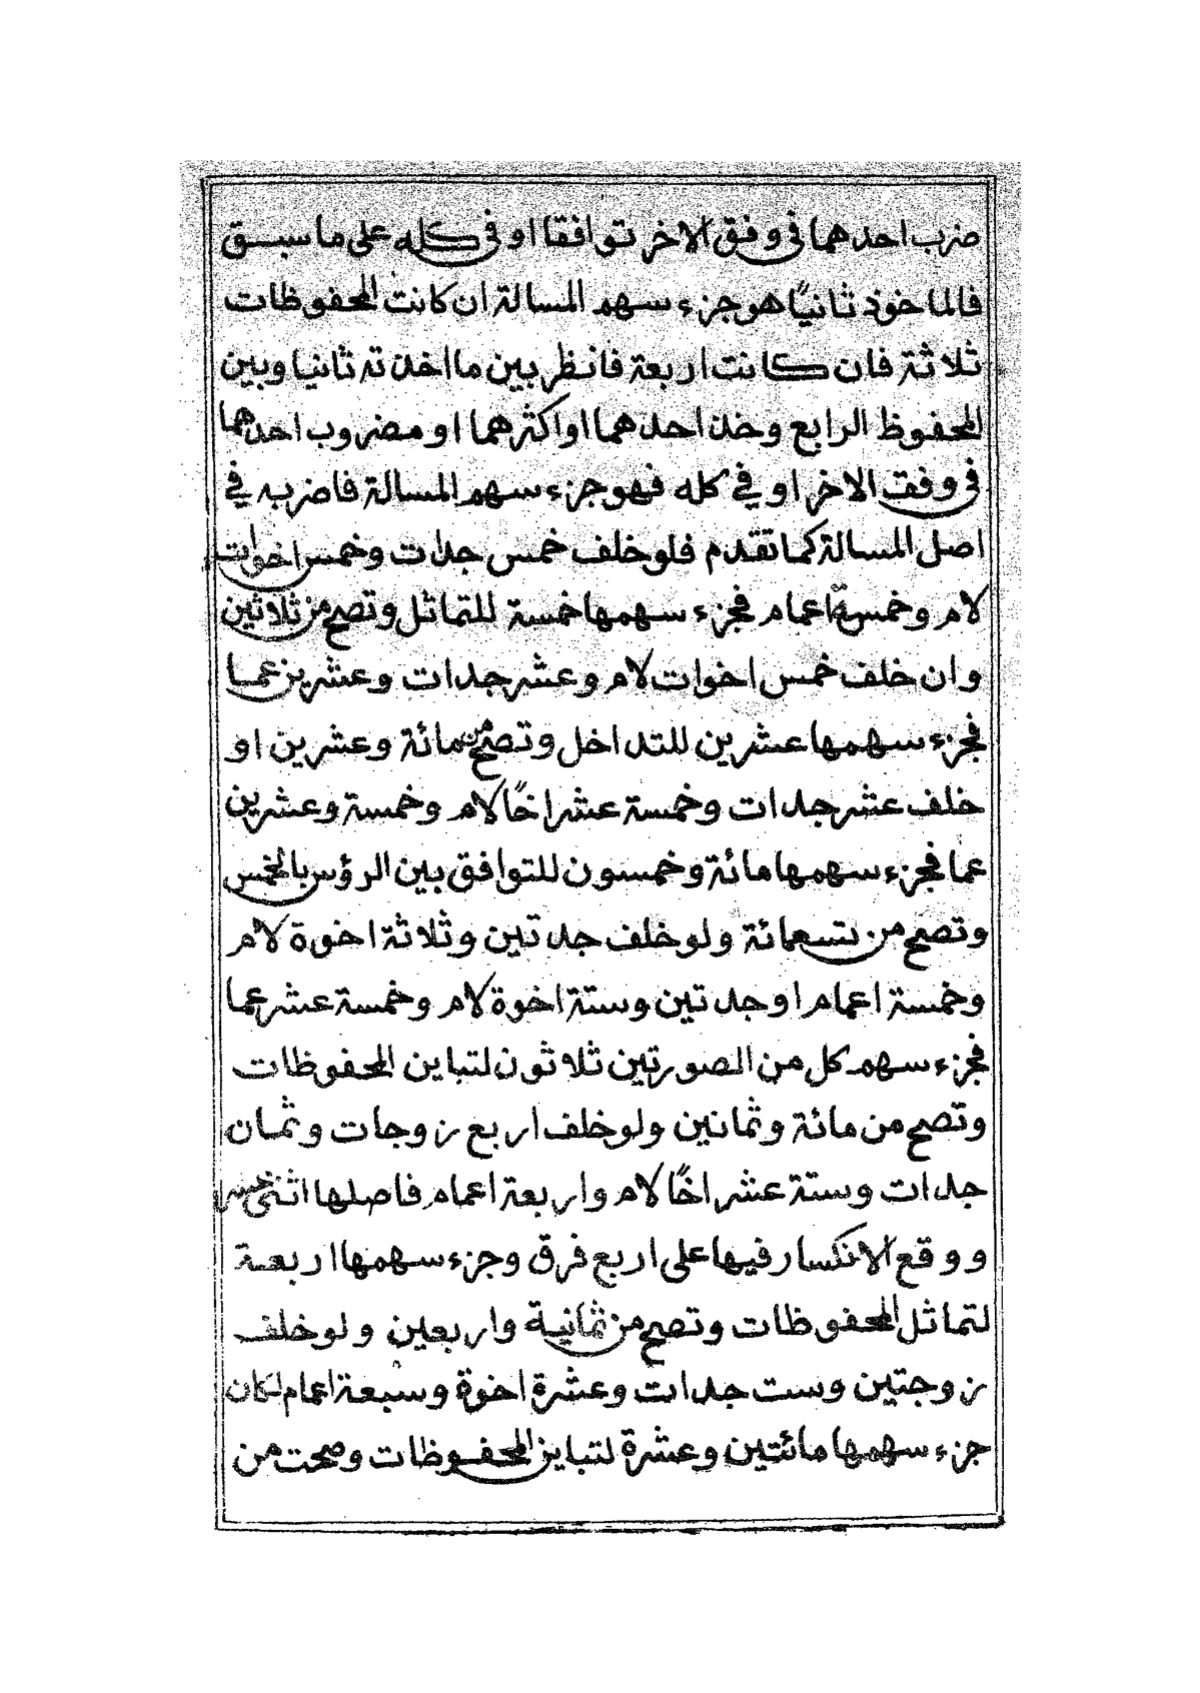 ضرب احدهما في وفق الاخر توافقا او في كله على ما سبق
فالماخوذ ثانيًا هو جزء سهم المسالة ان كانت المحفوظات
ثلاثة فان كانت اربعة فانظر بين ما اخذته ثانيا وبين
المحفوظ الرابع وخذ احدهما او اكثرهما او مضروب احدهما
في وفق الاخر او في كله فهو جزء سهم المسالة فاضربه في
اصل المسالة كما تقدم فلو خلف خمس جدات وخمس اخوات
لام وخمسة اعمام فجزء سهمها خمسة للتماثل وتصح من ثلاثين
وان خلف خمس اخوات لام وعشر جدات وعشرين عما
فجزء سهمها عشرين للتداخل وتصح من مائة وعشرين او
خلف عشر جدات وخمسة عشر اخًا لام وخمسة وعشرين
عما فجزء سهمها مائة وخمسون للتوافق بين الرؤس بالخمس
وتصح من تسعمائة ولو خلف جدتين وثلاثة اخوة لام
وخمسة اعمام او جدتين وستة اخوة لام وخمسة عشر عما
فجزء سهم كل من الصورتين ثلاثون لتباين المحفوظات
وتصح من مائة وثمانين ولو خلف اربع زوجات وثمان
جدات وستة عشر اخًا لام واربعة اعمام فاصلها اثنى عشر
ووقع الانكسار فيها على اربع فرق وجزء سهمها اربعة
لتماثل المحفوظات وتصح من ثمانية واربعين ولو خلف
زوجتين وست جدات وعشرة اخوة وسبعة اعمام لكان
جزء سهمها مائتين وعشرة لتباين المحفوظات وصحت من